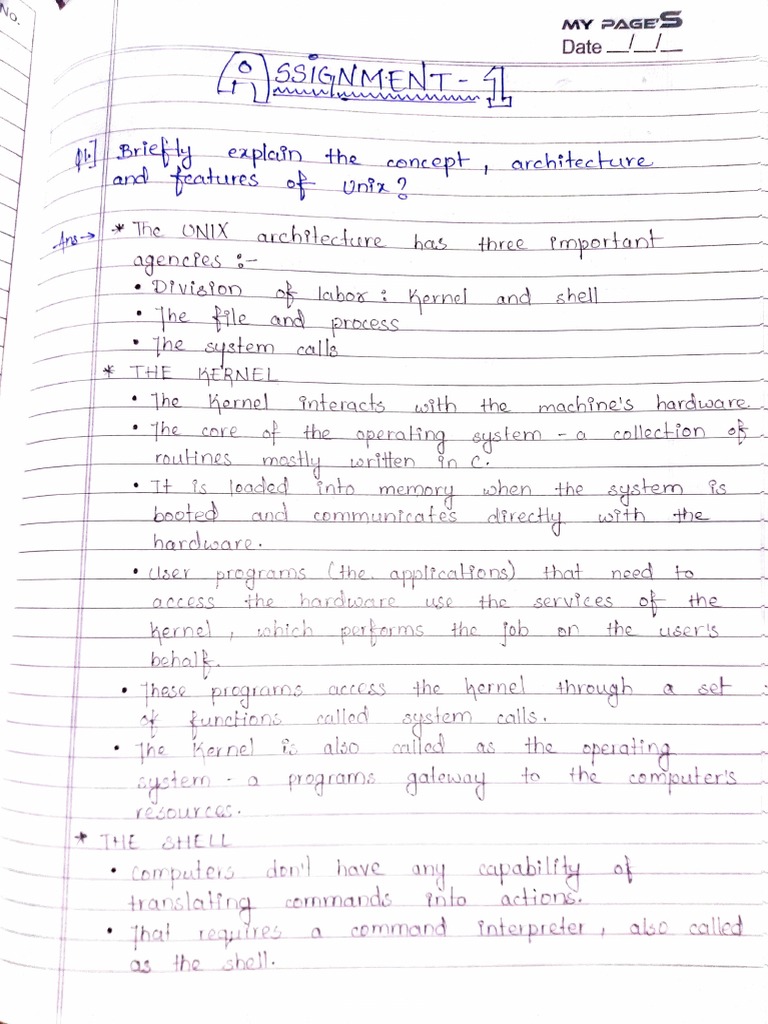 No.
MY PAGE'S
Date __/__/__
ASSIGNMENT - 1
Q1.] Briefly explain the concept, architecture
and features of Unix?
Ans → * The UNIX architecture has three important
agencies :-
• Division of labor : Kernel and shell
• The file and process
• The system calls
* THE KERNEL
• The Kernel interacts with the machine's hardware.
• The core of the operating system - a collection of
routines mostly written in C.
• It is loaded into memory when the system is
booted and communicates directly with the
hardware.
• User programs (the applications) that need to
access the hardware use the services of the
Kernel, which performs the job on the user's
behalf.
• These programs access the kernel through a set
of functions called system calls.
• The Kernel is also called as the operating
system - a programs gateway to the computer's
resources.
* THE SHELL
• Computers don't have any capability of
translating commands into actions.
• That requires a command interpreter, also called
as the shell.